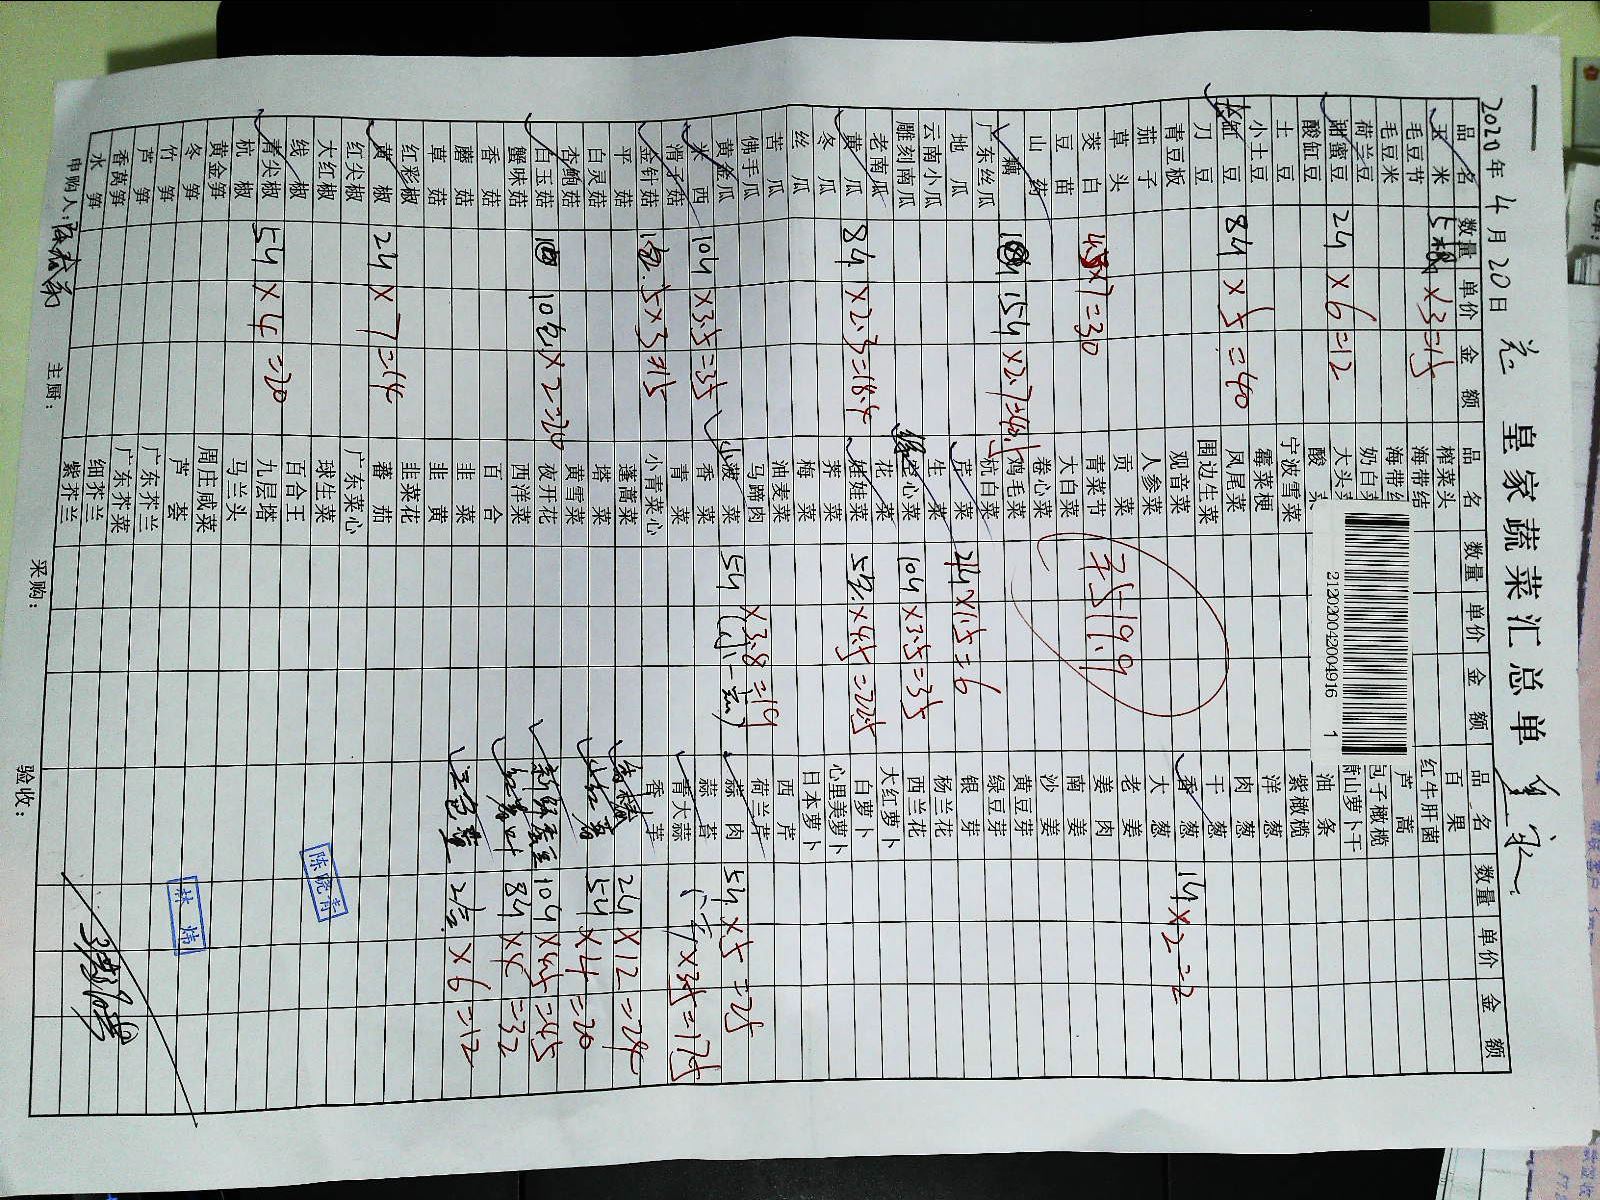 皇家蔬菜汇总单
2020年4月20日
2120200420004916 1
品名 数量 单价 金额 品名 数量 单价 金额 品名 数量 单价 金额
玉米 ×3=15
毛豆节
毛豆米
荷兰豆
甜蜜豆 2斤 ×6=12
酸缸豆
土豆
小土豆
豆 8斤 ×5=40
刀豆
青豆板
茄子
草头
茭白 ×7=30
豆苗
山药
藕 15斤 ×2.7=40.5
广东丝瓜
地瓜
云南小瓜
雕刻南瓜
老南瓜
黄瓜 8斤 ×2.3=18.4
冬瓜
丝瓜
苦瓜
佛手瓜
黄金瓜
米西 10斤 ×3.5=35
滑子菇
金针菇 5×3=15
平菇
白灵菇
杏鲍菇
白玉菇 10包×2=20
蟹味菇
香菇
蘑菇
草菇
红彩椒
黄椒 2斤 ×7=14
红尖椒
大红椒
线椒
青尖椒 5斤 ×4=20
杭椒
黄金笋
冬笋
竹笋
芦笋
香莴笋
水笋
榨菜头
海带结
海带
奶白
大头
酸
宁波雪菜
霉菜梗
凤尾菜
围边生菜
观音菜
人参菜
贡菜
青菜节 7519.9
大白菜
卷心菜
鸡毛菜
杭白菜
芹菜 ×1.5=6
生菜
空心菜 10斤 ×3.5=35
花菜
娃娃菜 ×4.5=22.5
荠菜
梅菜
油麦菜
马蹄肉
菠菜 5斤 ×3.8=19
香菜
青菜
小青菜心
蓬蒿菜
塔菜
黄雪菜
夜开花
西洋菜
百合
韭菜
韭黄
韭菜花
蕃茄
广东菜心
球生菜
百合王
九层塔
马兰头
周庄咸菜
芦荟
广东芥兰
广东芥菜
细芥兰
紫芥兰
百果
红牛肝菌
芦蒿
包子橄榄
萧山萝卜干
油条
紫橄榄
洋葱
肉葱
干葱
香葱 1斤 ×2=2
大葱
老姜
姜肉
南姜
沙姜
黄豆芽
绿豆芽
银芽
杨兰花
西兰花
大红萝卜
白萝卜
心里美萝卜
日本萝卜
西芹
荷兰芹
蒜肉 5斤 ×5=25
蒜苔
青大蒜 ×3.5=17.5
香芋
2斤 ×12=24
5斤 ×4=20
10斤 ×4.5=45
8斤 ×4=32
×6=12
陈晓青
林炜
申购人: 主厨: 采购: 验收: